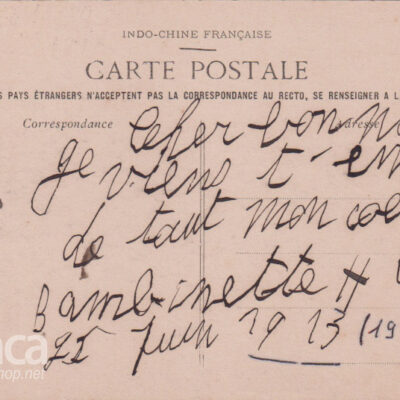 INDO-CHINE FRANÇAISE
CARTE POSTALE
S PAYS ÉTRANGERS N'ACCEPTENT PAS LA CORRESPONDANCE AU RECTO, SE RENSEIGNER A L
Correspondance
Adresse
Cher bon
je viens t'en
de tout mon coe
Bambinette H
25 Juin 1913 (19
nca
shop.net